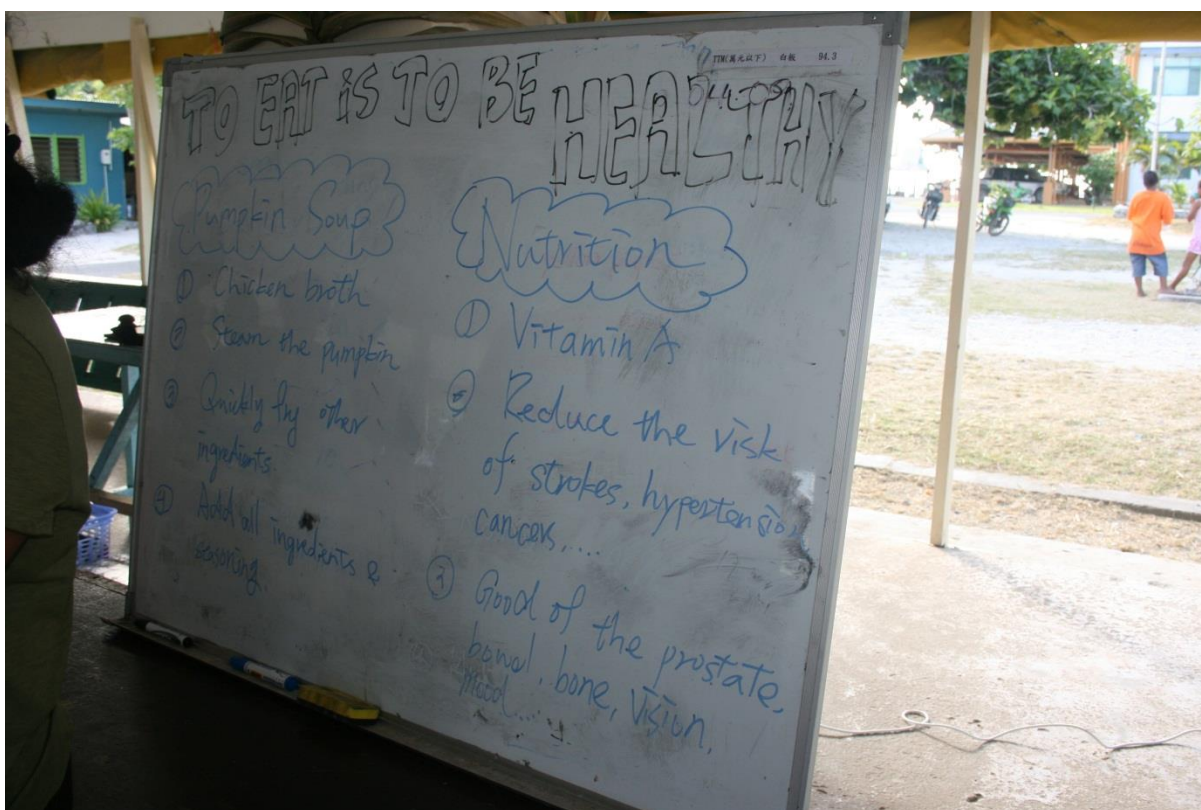 TTM(萬元以下) 白板 94.3
TO EAT iS TO BE HEALTHY
Pumpkin Soup
① Chicken broth
② Steam the pumpkin
③ Quickly fry other
ingredients.
④ Add all ingredients &
seasoning.
Nutrition
① Vitamin A
② Reduce the risk
of strokes, hypertension,
cancers.....
③ Good of the prostate,
bowel, bone, vision,
mood.....